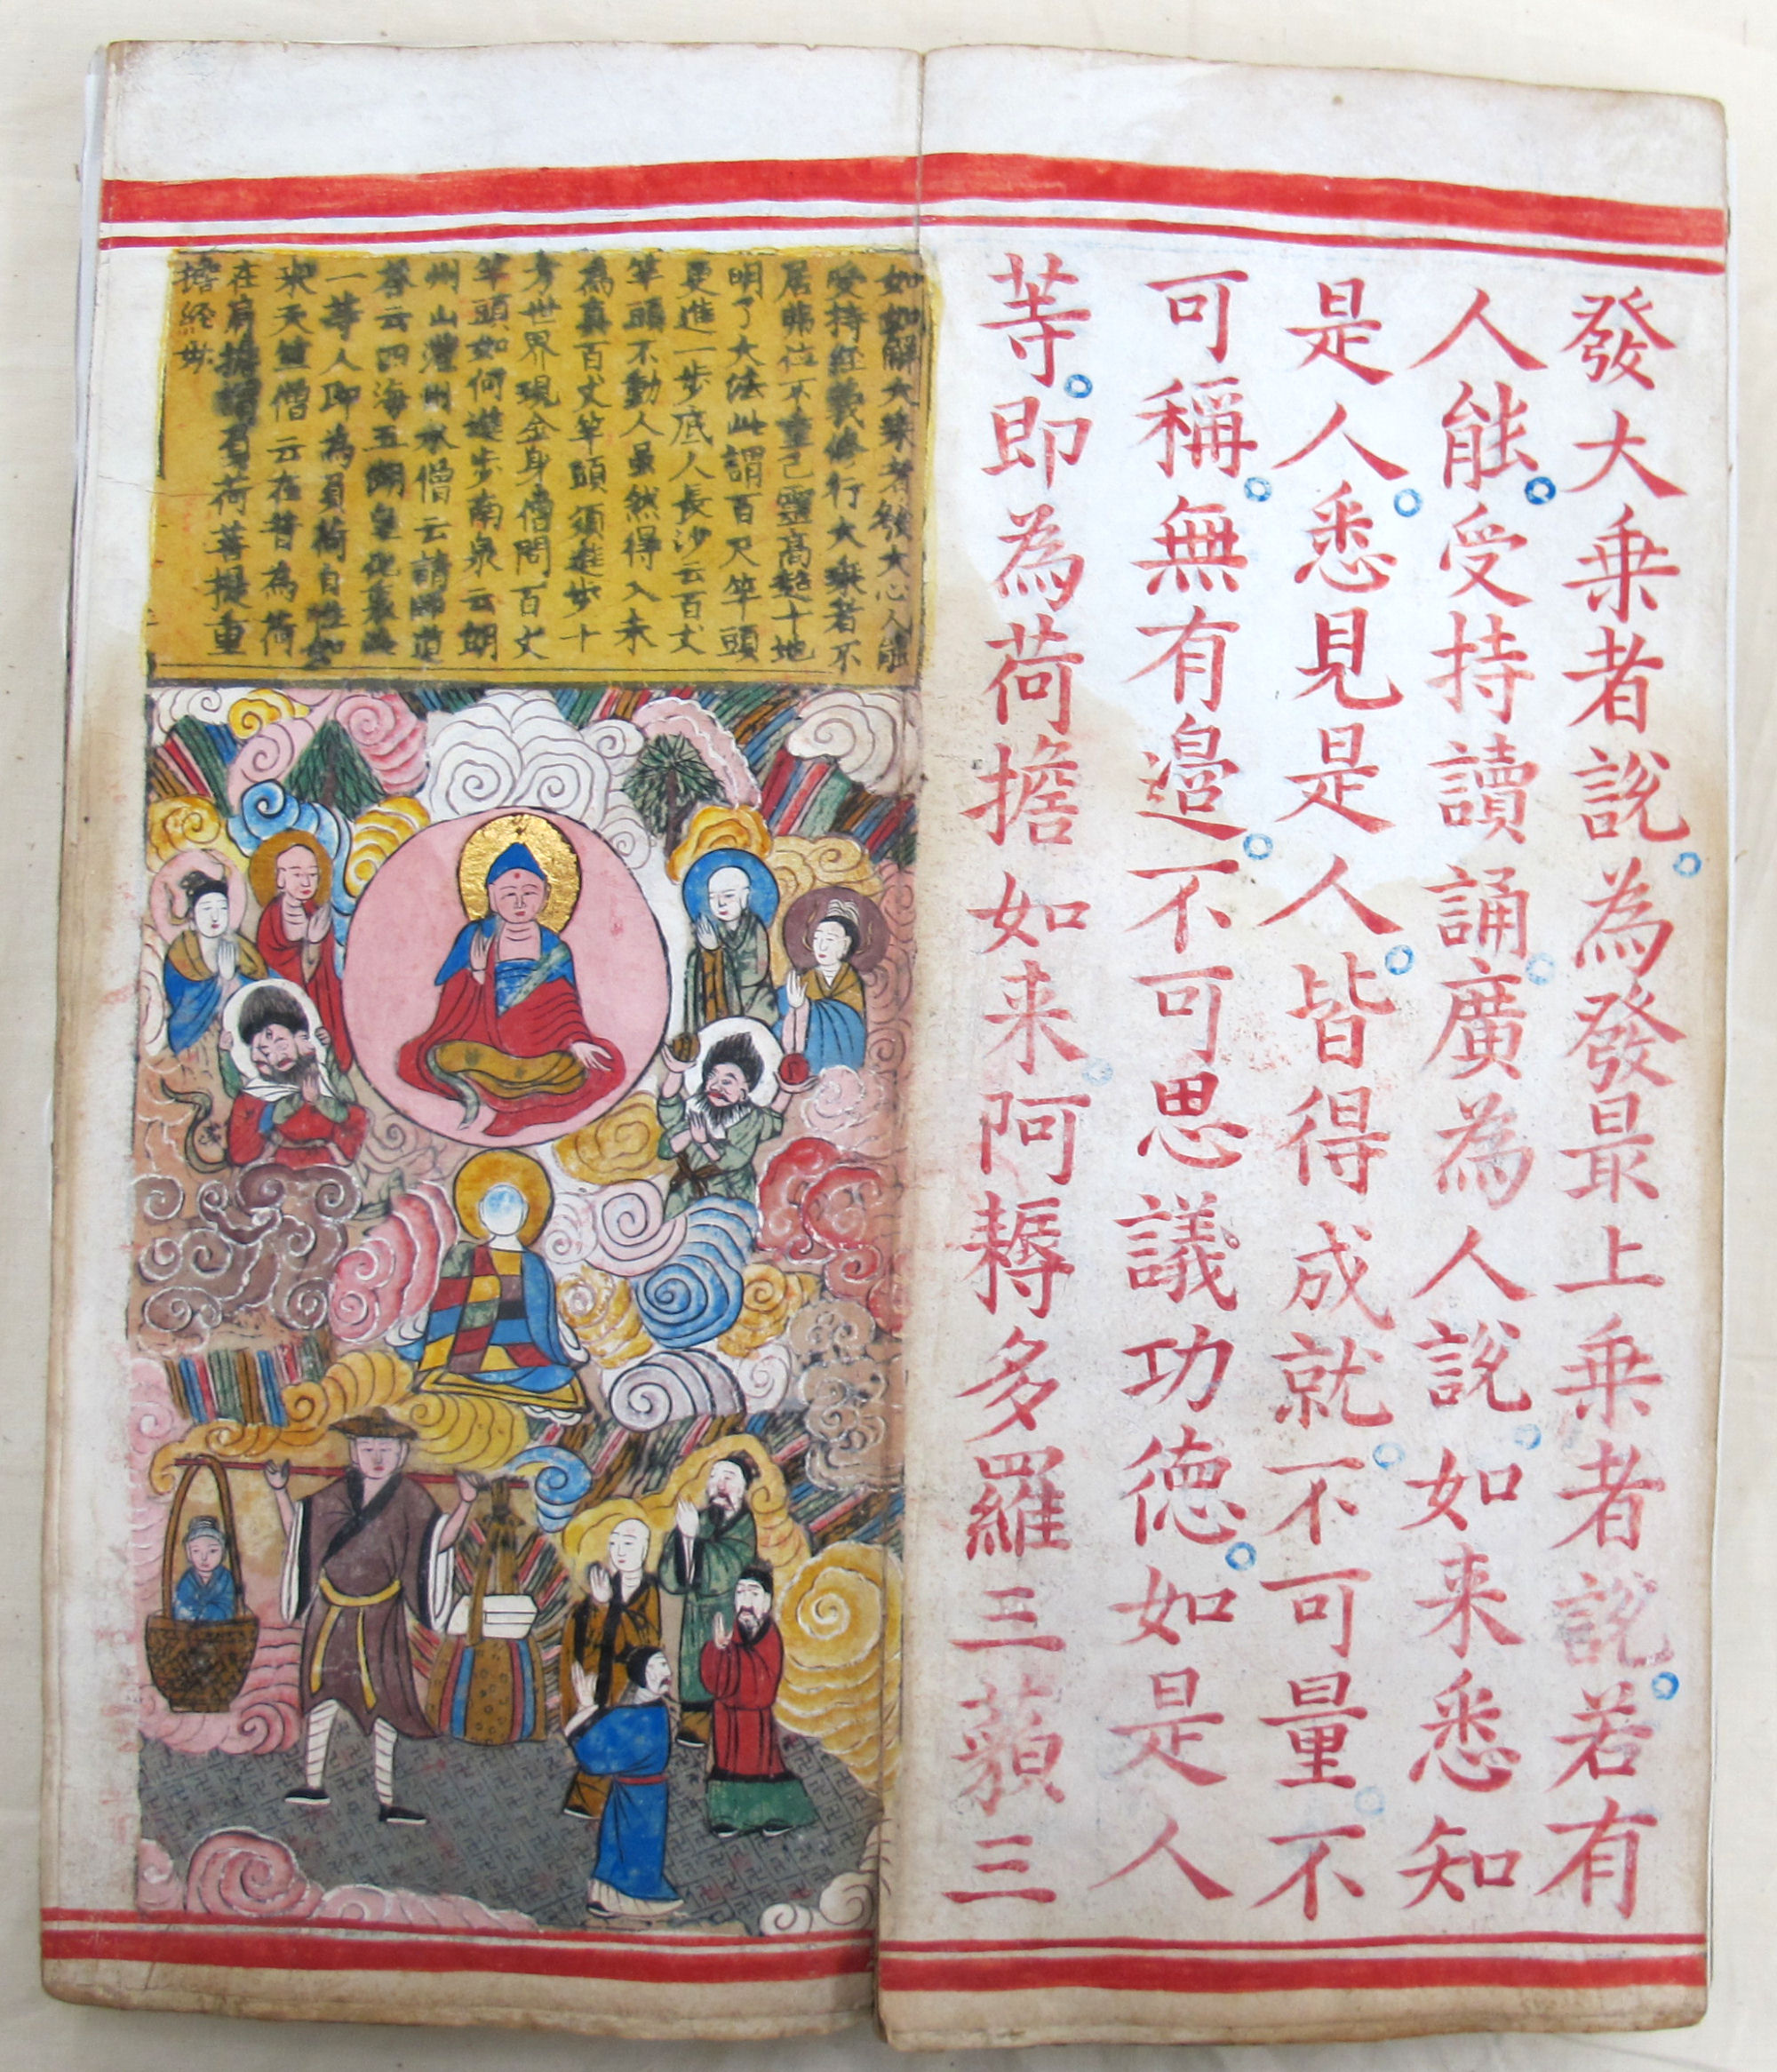 發大乗者說為發最上乗者說若有
人能受持讀誦廣為人說如来悉知
是人悉見是人皆得成就不可量不
可稱無有邉不可思議功德如是人
等即為荷擔如来阿耨多羅三藐三
如如解大乗者發大心人能
受持經義修行大乗者不
居歸位不重己靈高超十地
明了大法此謂百尺竿頭
更進一步底人長沙云百丈
竿頭不動人虽然得入未
為真百丈竿頭須進步十
方世界現全身僧問百丈
竿頭如何進步南泉云朗
州山澧州水僧云請師道
答云四海五湖皇化裏
一等人即為負荷自性如
来天竺僧云在昔為荷
在肩擔謂有荷菩提重
擔経